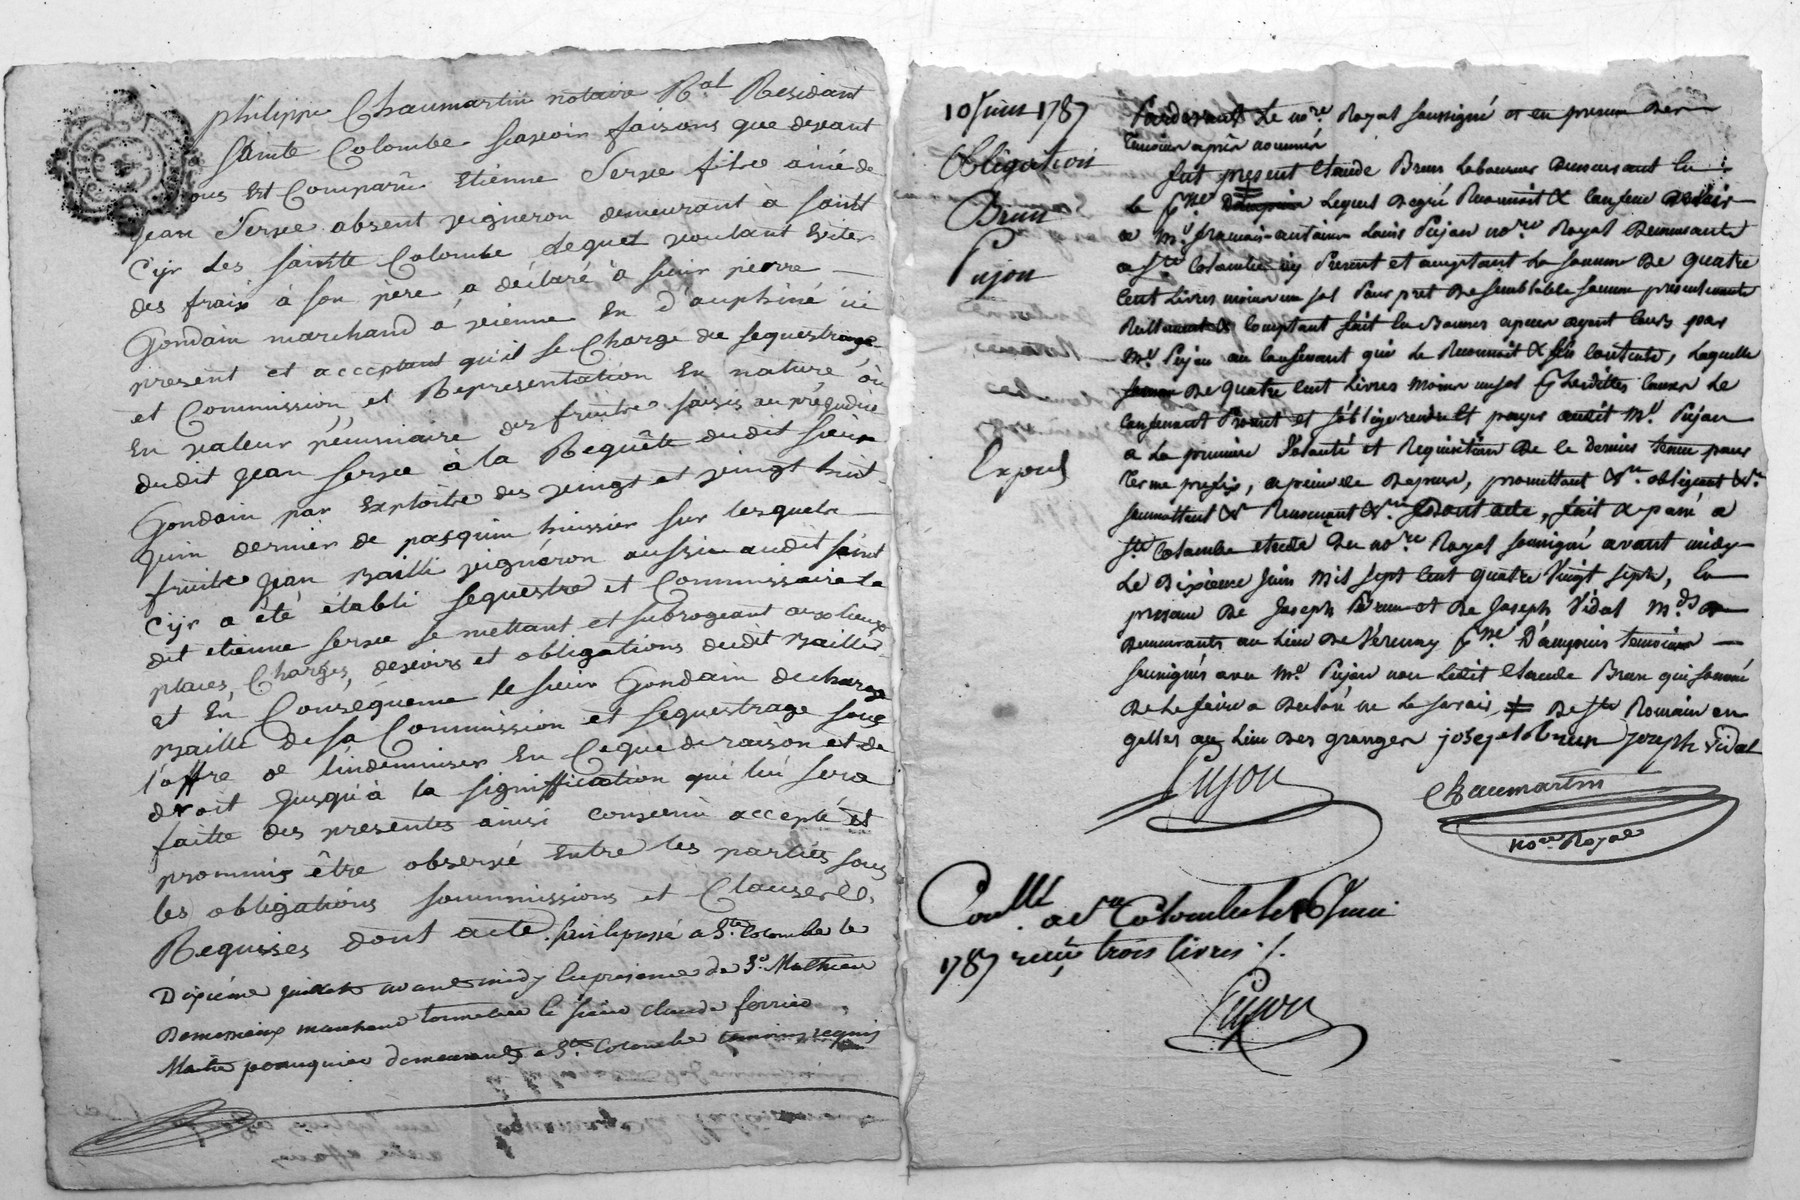 philippe Chaumartin notaire Ral Residant
Sainte Colombe scavoir faisons que devant
nous Est Comparû Etienne Servse filse ainé de
jean Servse absent vigneron demeurant à saint
Cyr Les saintte Colombe lequel voulant Eviter
des fraix à son père a déclaré a sieur pierre
Gondain marchand à vienne En d'auphiné ici
present et acceptant qu'il se Charge du sequestrage
et Commission, et Representation En nature ou
En valeur pécuniaire des fruits saisis au préjudice
dudit jean servse à la Requête dudit sieur
Gondain par Exploits des vingt et vingt huit
juin dernier de pasquin huissier sur lesquels
fruits jean Maillé vigneron aussi audit saint
Cyr a été établi sequestre et Commissaire Le
dit etienne servse se mettant et subrogeant aux lieux
places, Charges, devoirs et obligations dudit Maillé
et En Conséquence le sieur Gondain decharge
Maillé de sa Commission et sequestrage sous
l'offre de l'indemniser En Ceque de raison et de
droit jusqu'à la signiffication qui lui sera
faitte des presentes ainsi convenu accepté et
prommis être observé Entre les parties sous
les obligations soummissions et Clauses
Requises dont acte. fait et passé a Ste. Colombe le
Dixiéme juillet avant midy En presence de Sr. Mathieu
marchand tonnelier le sieur Claude ferrier
Maitre perruquier demeurants a Ste. Colombe temoins requis
10 Juin 1787
Obligation
Brun
Pujon
Expéd
Pardevant Le nore Royal soussigné et en presence des
temoins après nommés
fut present Claude Brun Laboureur demeurant
Lequel de gré Reconnoit & Confesse devoir
a Me. françois-antoine Louis Pujon nore Royal demeurant
a Ste Colombe icy Present et acceptant La somme de quatre
Cent Livres moins un sol Pour pret de semblable somme presentement
Reellement & Comptant fait En Bonnes especes ayant Cours par
Me. Pujon au Confessant qui Le Reconnoit & s'en Contente, Laquelle
somme de quatre Cent Livres Moins un sol Lesdittes Causes Le
Confessant Promet et s'oblige rendre et payer audit Me. Pujon
a La premiere Volonté et Requisition de Ce dernier tenue pour
terme prefix, a peine de Depens, promettant &a. obligeant &a.
soumettant &a Renonçant &a Dont acte, fait & passé a
Ste Colombe etude du nore Royal soussigné avant midy
Le Dixieme Juin Mil sept Cent quatre Vingt sept, En
presence de Joseph Brun et de Joseph Vidal Mds
demeurants au Lieu de Verenay temoins
soussignés avec Me. Pujon non Ledit Claude Brun qui sommé
de Le faire a Declaré ne Le scavoir, ‡ de St. Romain en
galles au Lieu des granges joseph brun joseph Vidal
Pujon
Chaumartin
nore Royal
Conllé. a Ste Colombe le Juin
1787 reçu trois livres ./.
Pujon